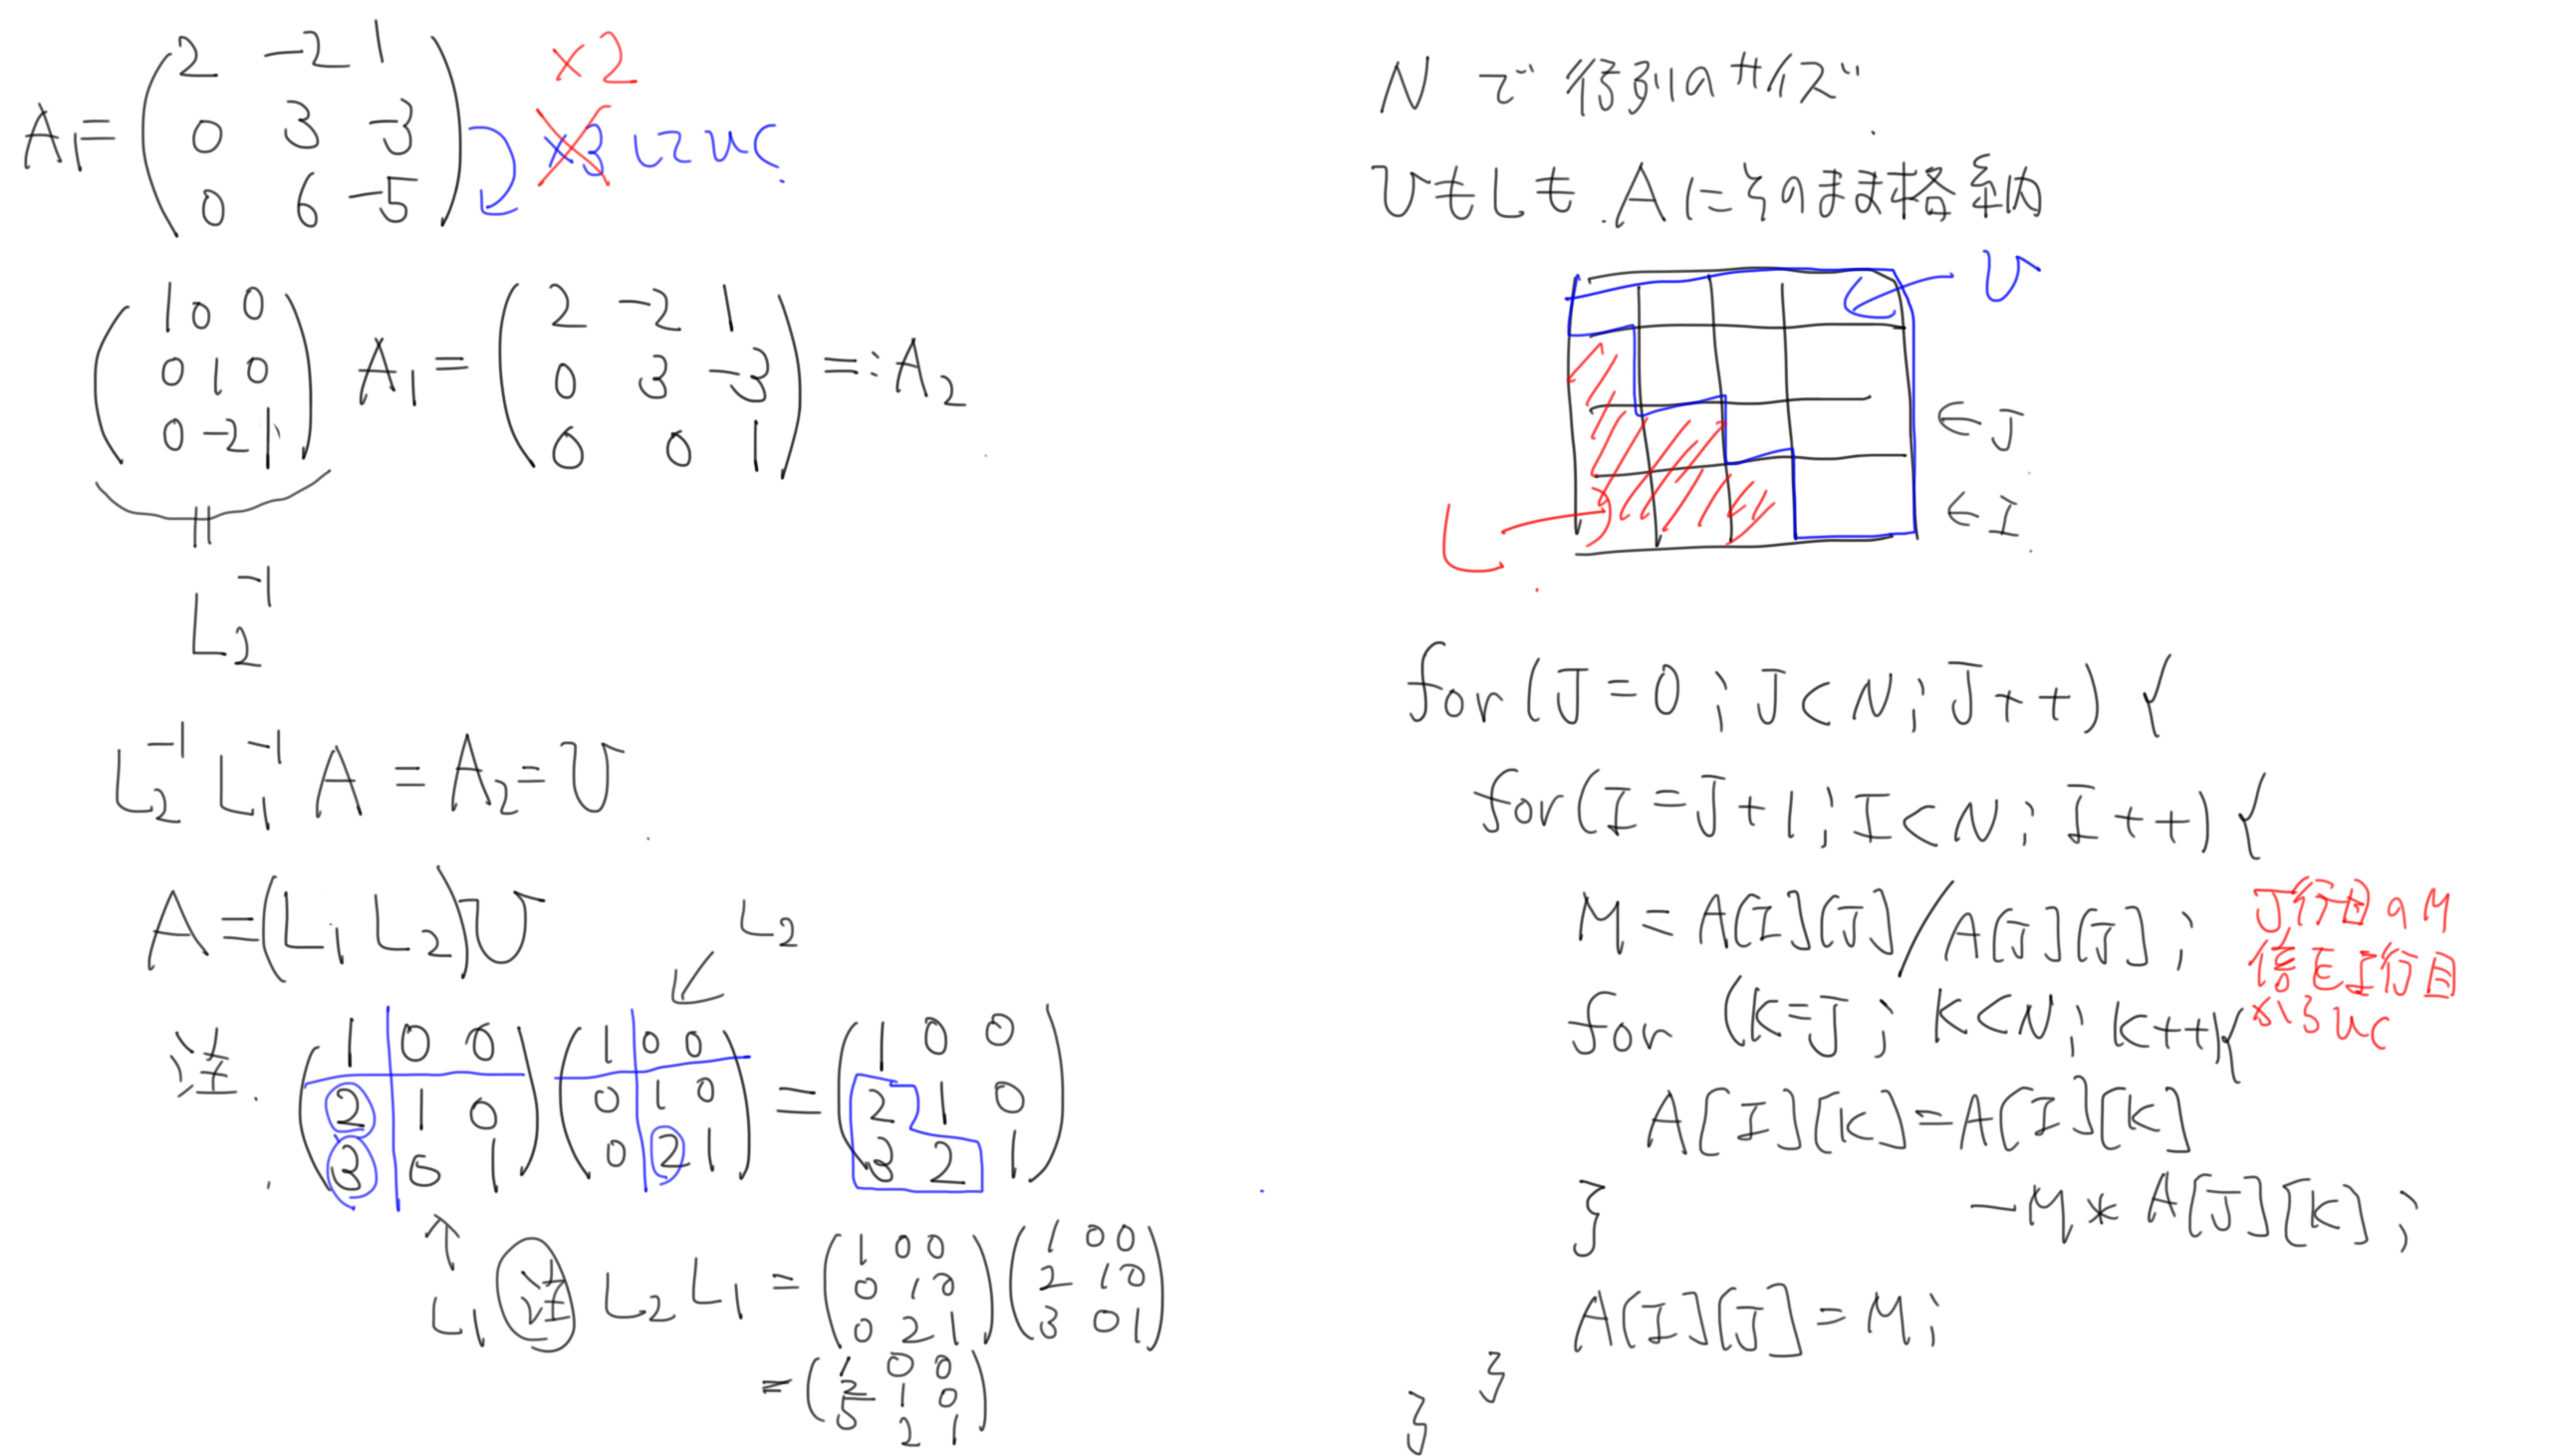 A₁ = ( 2 -2 1
0 3 -3
0 6 -5 )
×2
×3 してひく
( 1 0 0
0 1 0
0 -2 1 ) A₁ = ( 2 -2 1
0 3 -3
0 0 1 ) =: A₂
L₂⁻¹
L₂⁻¹ L₁⁻¹ A = A₂ = U
A = (L₁ L₂) U
L₂
注. ( 1 0 0
2 1 0
3 0 1 ) ( 1 0 0
0 1 0
0 2 1 ) = ( 1 0 0
2 1 0
3 2 1 )
L₁
注 L₂ L₁ = ( 1 0 0
0 1 0
0 2 1 ) ( 1 0 0
2 1 0
3 0 1 )
= ( 1 0 0
2 1 0
5 2 1 )
N で行列のサイズ
UもLも.Aにそのまま格納
U
←J
←I
L
for(J=0;J<N;J++){
for(I=J+1;I<N;I++){
M=A[I][J]/A[J][J];
J行目のM
倍をI行目
からひく
for (K=J;K<N;K++){
A[I][K]=A[I][K]
-M*A[J][K];
}
A[I][J]=M;
}
}